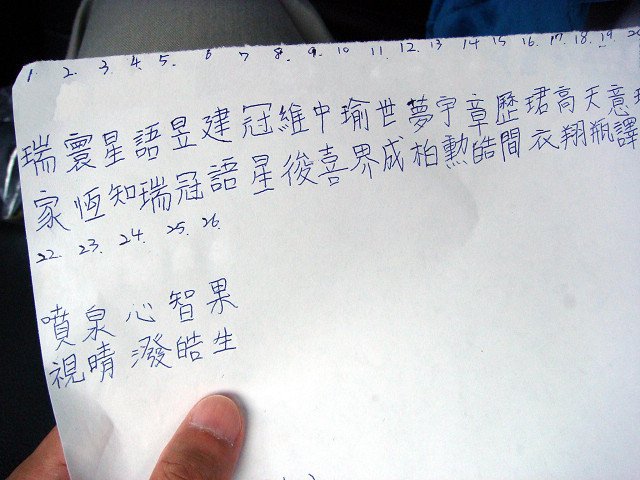 1. 2. 3. 4. 5. 6 7 8. 9. 10 11. 12. 13 14 15 16. 17. 18. 19 20
瑞寰星語昱建冠維中瑜世夢宇章歷珺高天意
家恆知瑞冠語星後喜界成柏勳皓間衣翔瓶譯
22. 23. 24. 25. 26.
噴泉心智果
視晴潑皓生